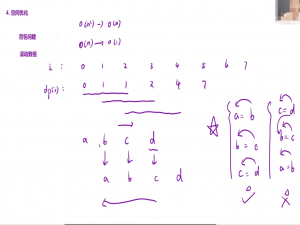 4. 空间优化
O(N²) → O(N)
背包问题
O(N) → O(1)
滚动数组
i : 0 1 2 3 4 5 6 7
dp[i] : 0 1 1 2 4 7
a b c d
a b c d
a = b
b = c
c = d
c = d
b = c
a = b